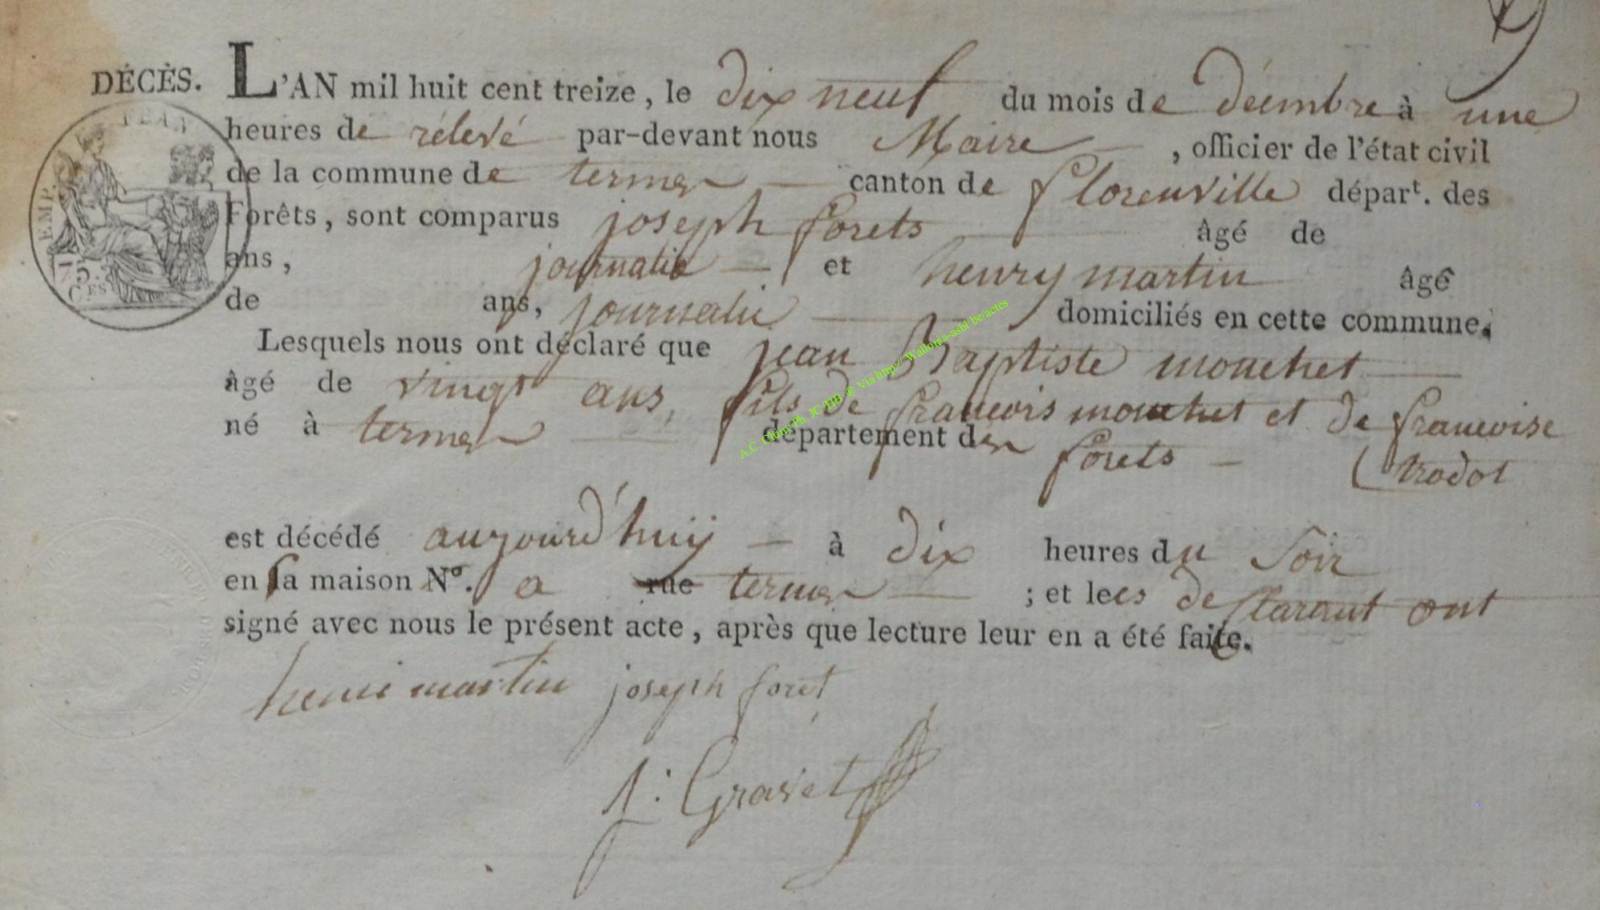 DÉCÈS. L'AN mil huit cent treize, le dix neuf du mois de décembre à une
heures de relevé par-devant nous Maire, officier de l'état civil
de la commune de termes canton de florenville départ. des
Forêts, sont comparus joseph forets âgé de
ans, journalie et henry martin âgé
de ans, journalie domiciliés en cette commune.
Lesquels nous ont déclaré que jean Baptiste mouchet
âgé de vingt ans, fils de francois mouchet et de francoise
né à termes département des forets trodot
est décédé aujourd'huy à dix heures du Soir
en sa maison N°. a rue termes ; et lees declarant ont
signé avec nous le présent acte, après que lecture leur en a été faite.
henri martin joseph foret
J: Gravet